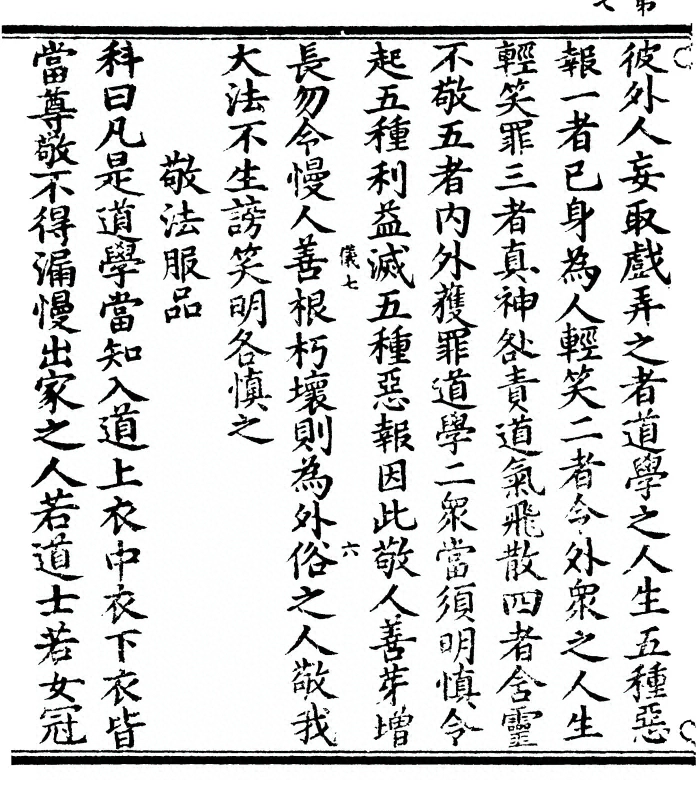 彼外人妄取戲弄之者道學之人生五種惡
報一者已身為人輕笑二者令外衆之人生
輕笑罪三者真神咎責道氣飛散四者含靈
不敬五者内外獲罪道學二衆當須明慎令
起五種利益滅五種惡報因此敬人善芽增
儀七 六
長勿令慢人善根朽壞則為外俗之人敬我
大法不生謗笑明各慎之
敬法服品
科曰凡是道學當知入道上衣中衣下衣皆
當尊敬不得漏慢出家之人若道士若女冠